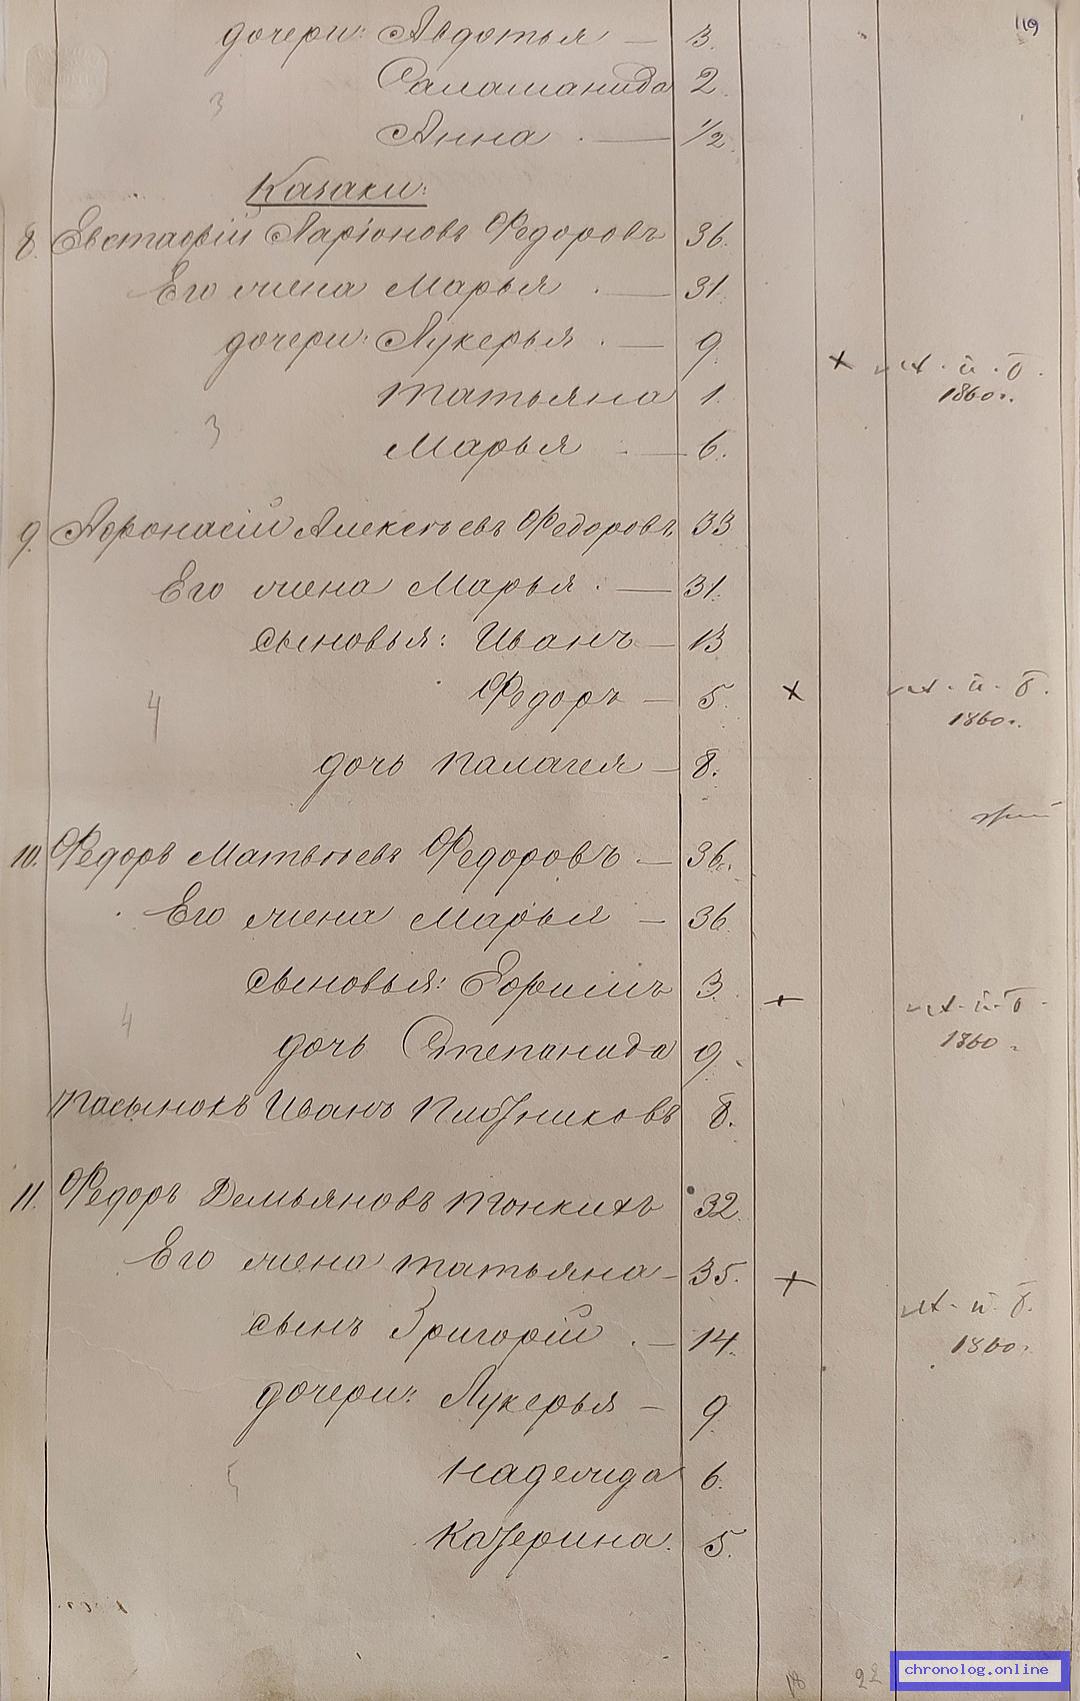 119
дочери: Авдотья — 3.
Саламанида 2.
3
Анна . — 1/2.
Казаки:
8. Евстафій Ларіоновъ Федоровъ 36.
Его жена Марья . — 31.
дочери: Лукерья . — 9.
Татьяна 1.
1860 г.
3
Марья . — 6.
9. Афонасій Алексѣевъ Федоровъ 33
Его жена Марья . — 31.
сыновья: Иванъ — 13
Федоръ — 5.
4
1860 г.
дочь Палагея — 8.
10. Федоръ Матвѣевъ Федоровъ . — 36.
Его жена Марья — 36.
сыновья: Ефимъ 3.
4
дочь Степанида 9.
1860
Пасынокъ Иванъ 8.
11. Федоръ Демьяновъ Тонкихъ 32.
Его жена Татьяна — 35.
сынъ Григорій . — 14.
1860 г.
дочери: Лукерья — 9.
5
Надежда 6.
Катерина. 5.
18 22
chronolog.online